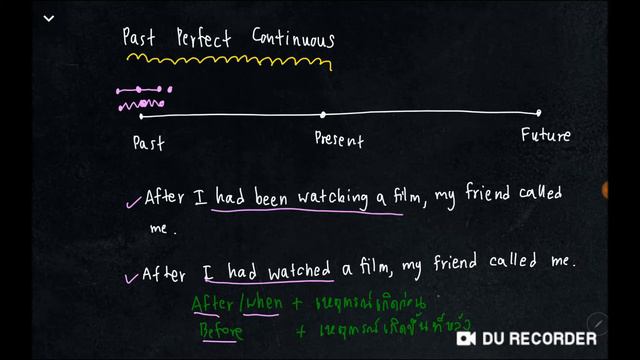 Past Perfect Continuous
Past Present Future
After I had been watching a film, my friend called
me.
After I had watched a film, my friend called me.
After/when + เหตุการณ์เกิดก่อน
Before + เหตุการณ์เกิดขึ้นทีหลัง
DU RECORDER